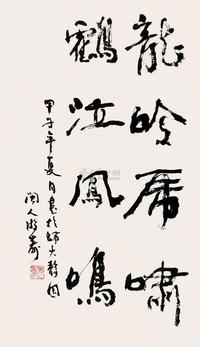 龍吟虎嘯
鶴泣鳳鳴
甲子年夏月書於師大靜園
閩人游壽